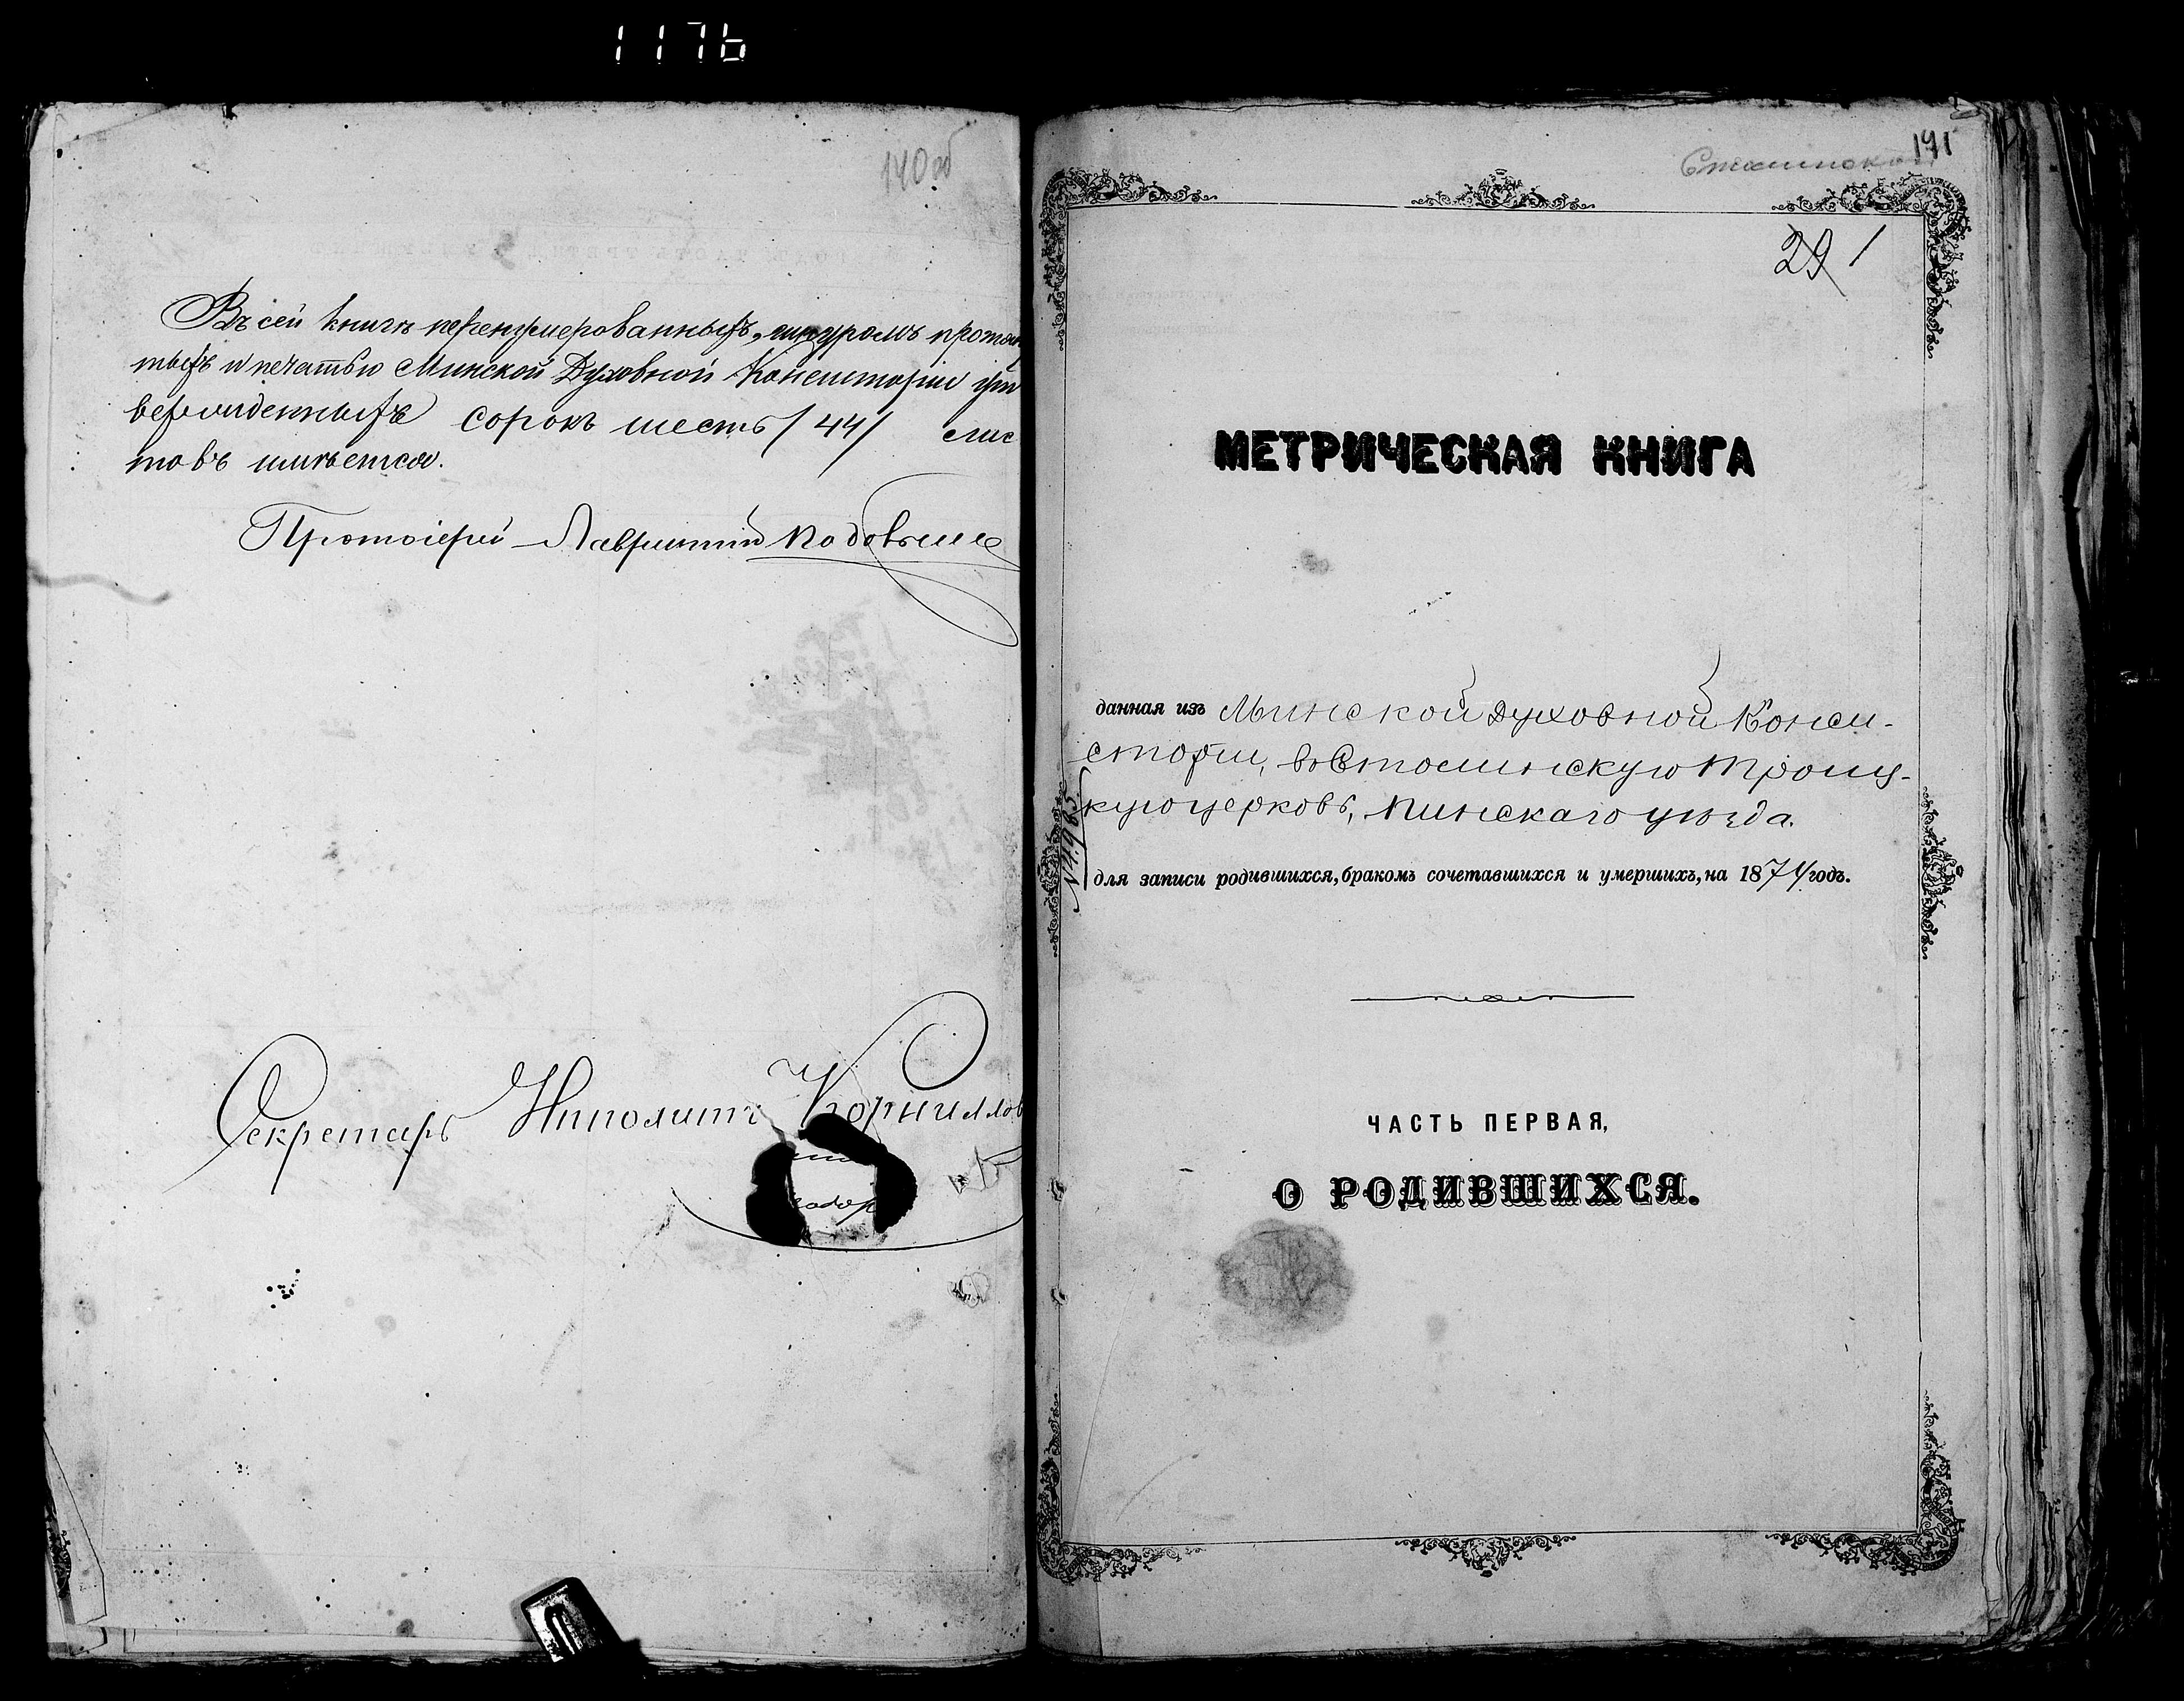 1176
140 об
Въ сей книгѣ перенумерованныхъ, шнуромъ прот
тыхъ и печатью Минской Духовной Консисторіи ут
вержденныхъ сорокъ шесть /44/ лис
товъ имѣется.
Протоіерей Лаврентій
Секретарь Ипполитъ Корнилов
141
29 1
МЕТРИЧЕСКАЯ КНИГА
данная изъ Минской Духовной Конси-
сторіи, въ Столинскую Троиц-
кую церковь, Пинскаго уѣзда.
№ 4965.
для записи родившихся, бракомъ сочетавшихся и умершихъ, на 1874 годъ.
ЧАСТЬ ПЕРВАЯ,
О РОДИВШИХСЯ.